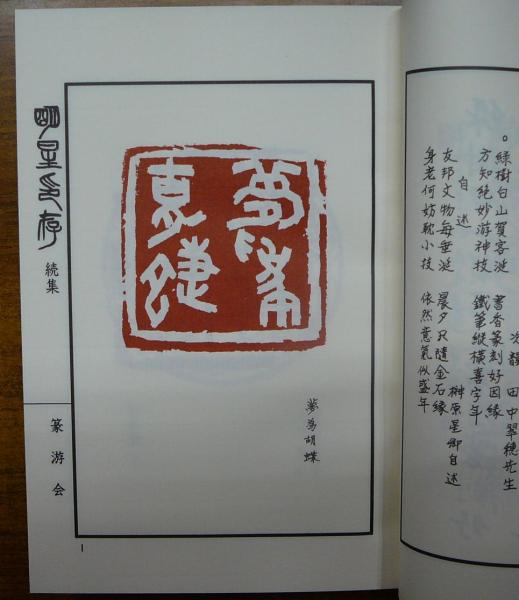 次韻 田中翠穂先生
。緑樹白山賀客涎 書香篆刻好因縁
方知絶妙游神技 鐵筆縱橫喜字年
自述 榊原星卿自述
友邦文物每垂涎 晨夕只隨金石縁
身老何妨耽小技 依然意氣似盛年
夢為胡蝶
明星印存
続集
篆游会
1